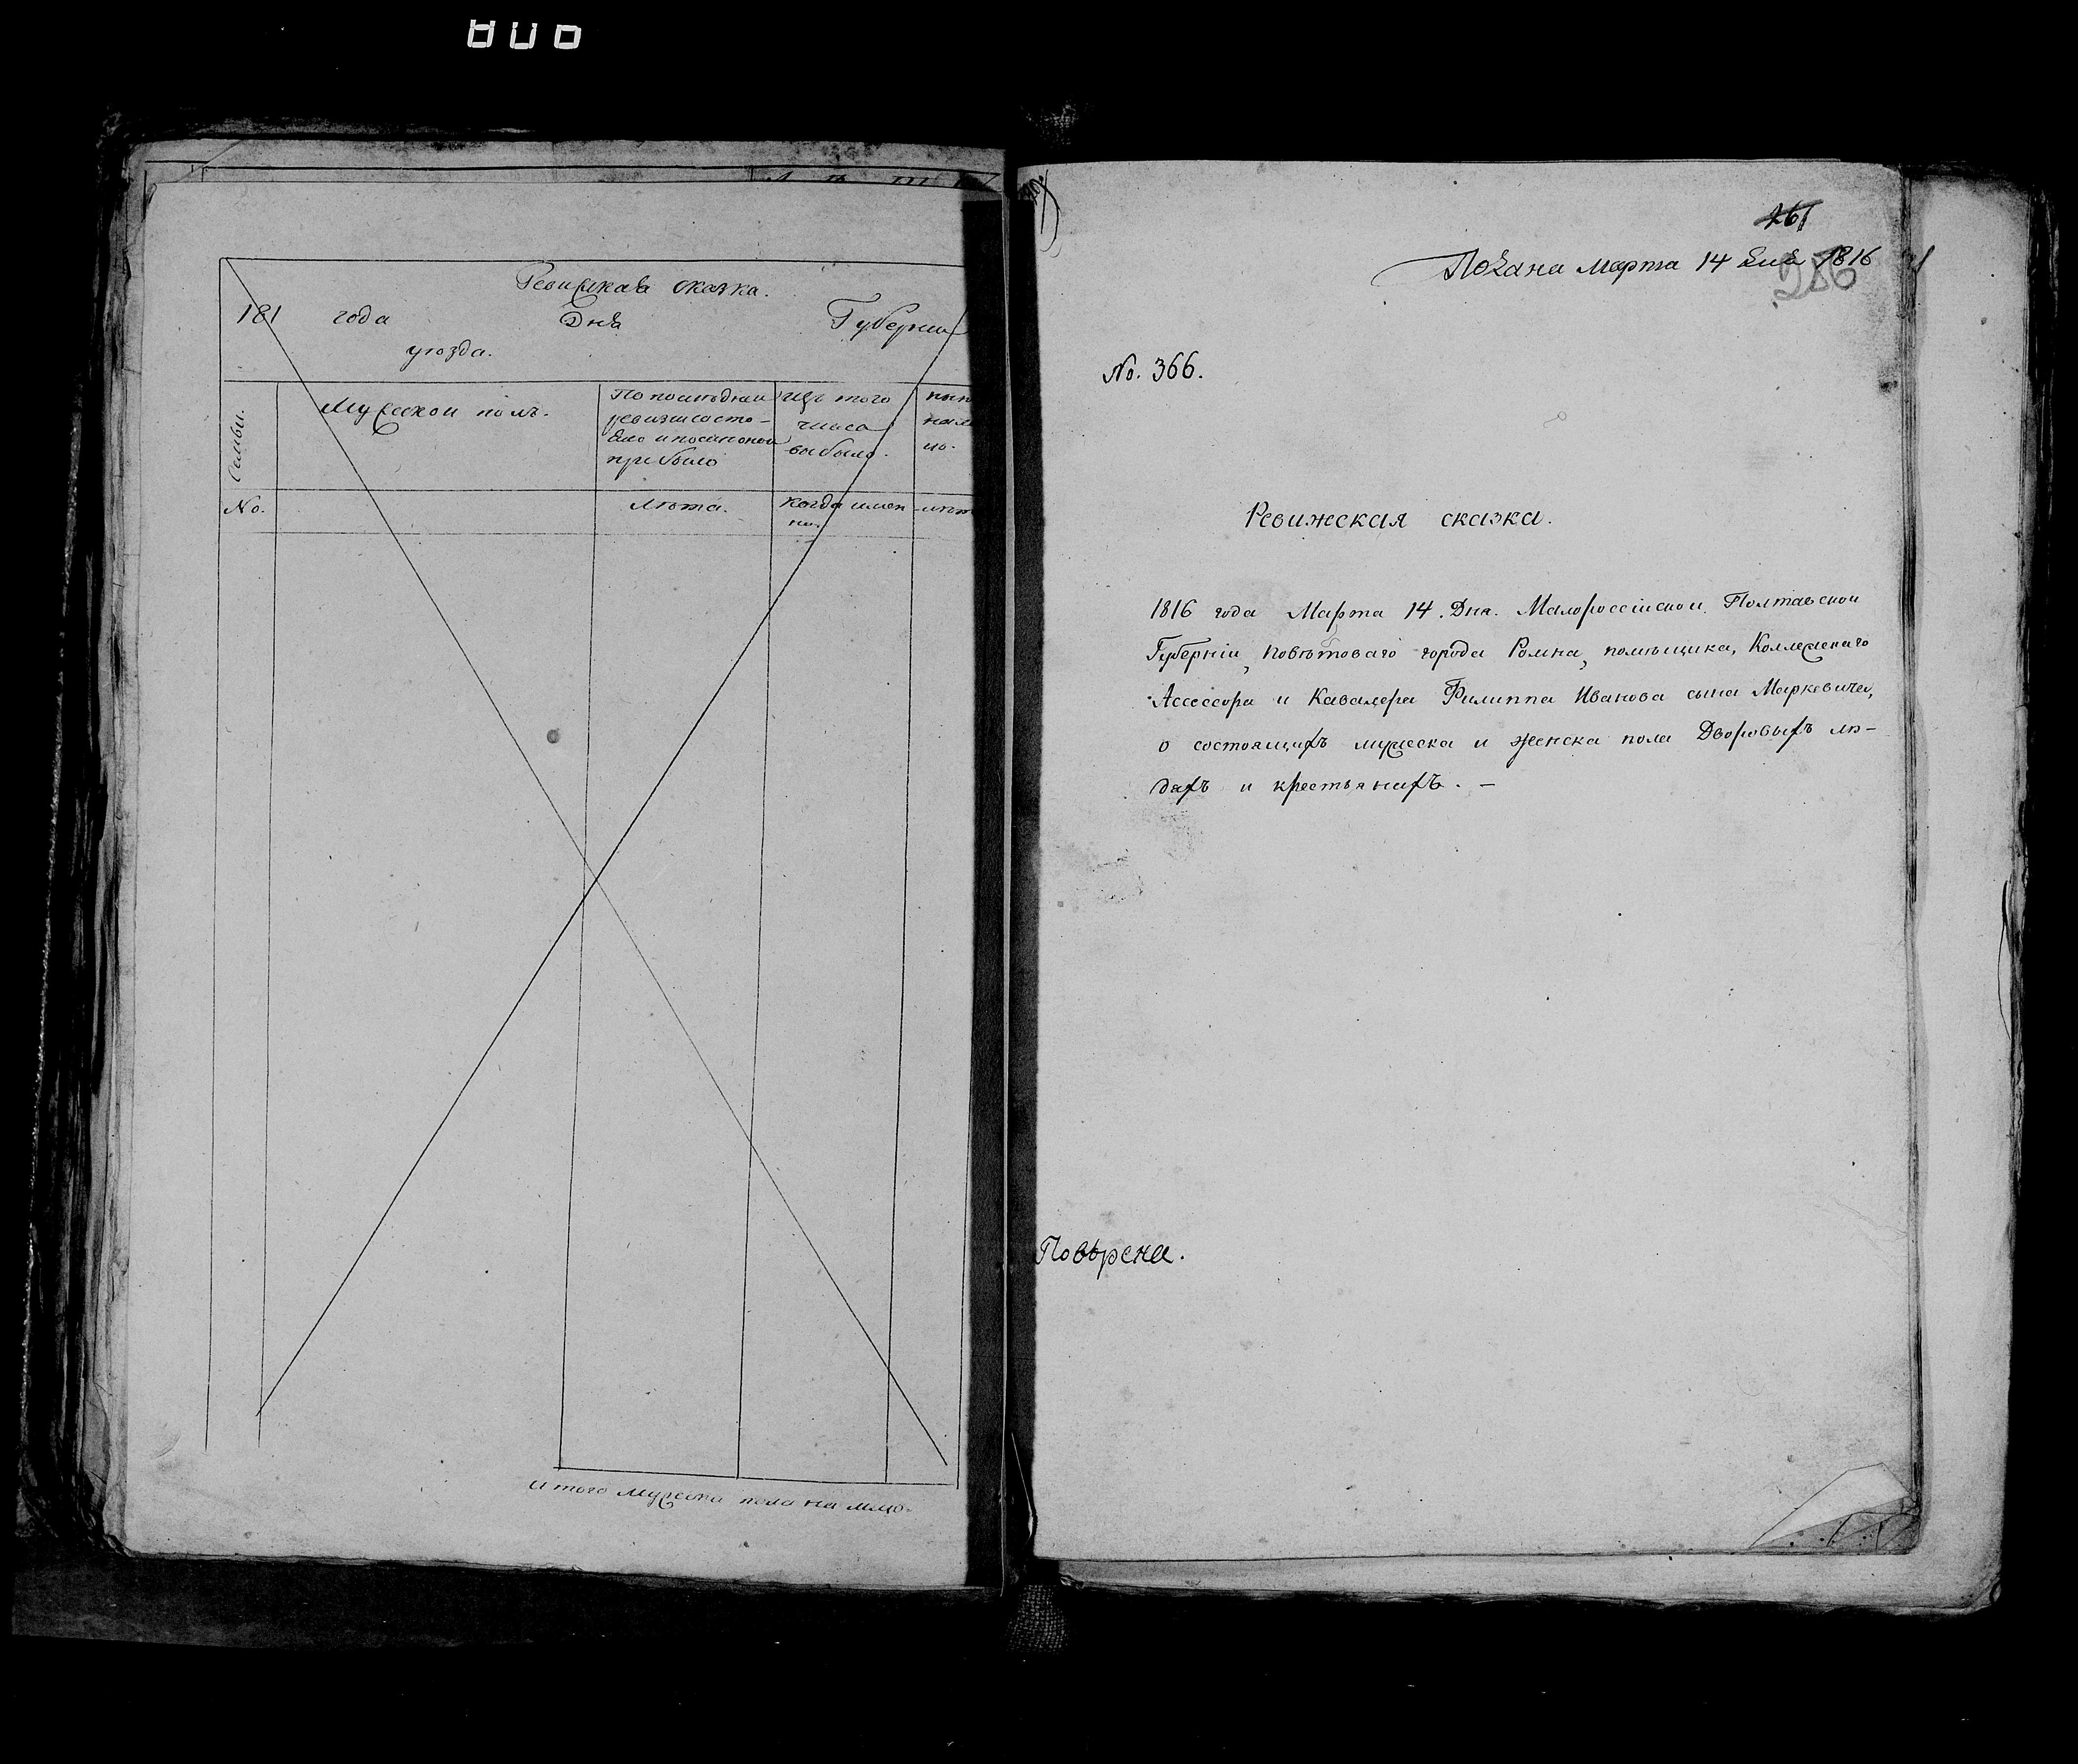 Ревижская сказка.
181 года Дня Губерніи
уезда.
Семьи.
Мужской полъ.
По последней
ревизіи состо-
яло и после оной
прибыло
Изъ того
числа
выбыло.
No.
лета.
когда имен
но.
Итого мужеска пола на лицо
261
Подана Марта 14 дня 1816
No. 366.
Ревижская сказка.
1816 года Марта 14. Дня. Малороссійской Полтавской
Губерніи, повѣтоваго города Ромна, помѣщика, Коллежскаго
Ассессора и Кавалера Филиппа Иванова сына Маркевича,
о состоящихъ мужеска и женска пола Дворовыхъ лю-
дяхъ и крестьянахъ. —
Повѣрена.